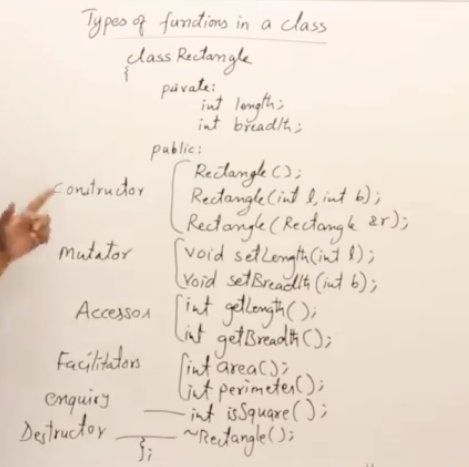 Types of functions in a class
class Rectangle
{
private:
int length;
int breadth;
public:
Rectangle();
constructor Rectangle(int l, int b);
Rectangle(Rectangle &r);
Mutator void setLength(int l);
void setBreadth(int b);
Accessor int getLength();
int getBreadth();
Facilitators int area();
int perimeter();
enquiry int isSquare();
Destructor ~Rectangle();
};